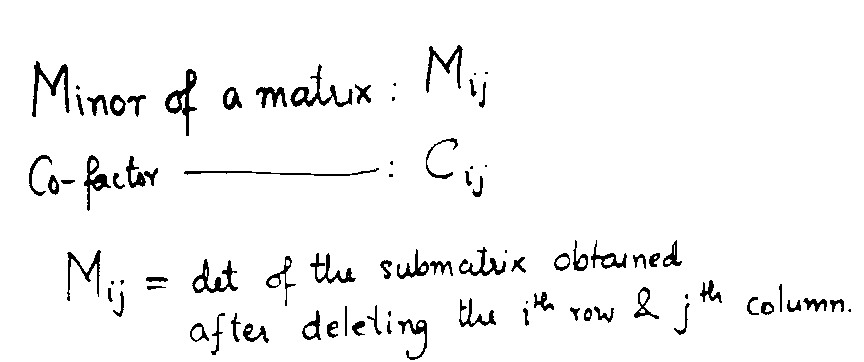 Minor of a matrix : Mij
Co-factor ——— : Cij
Mij = det of the submatrix obtained
after deleting the ith row & jth column.